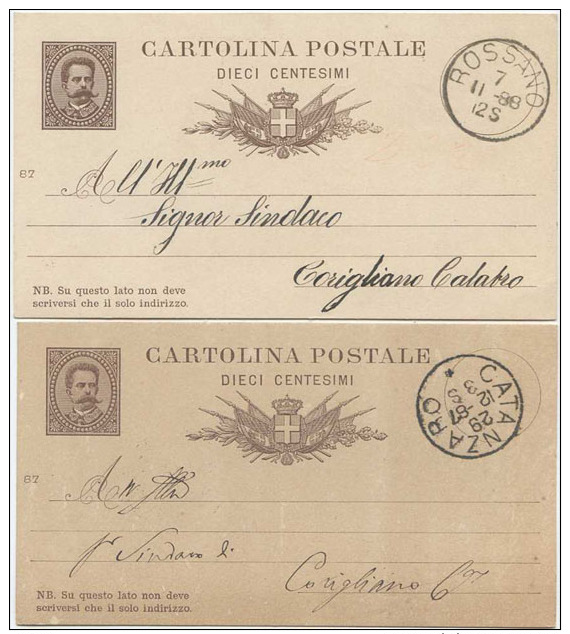 CARTOLINA POSTALE
DIECI CENTESIMI
ROSSANO
7
11-88
12S
87
All'Illmo
Signor Sindaco
Corigliano Calabro
NB. Su questo lato non deve
scriversi che il solo indirizzo.
CARTOLINA POSTALE
DIECI CENTESIMI
CATANZARO
29
87
All Ill
Sindaco di
Corigliano
NB. Su questo lato non deve
scriversi che il solo indirizzo.